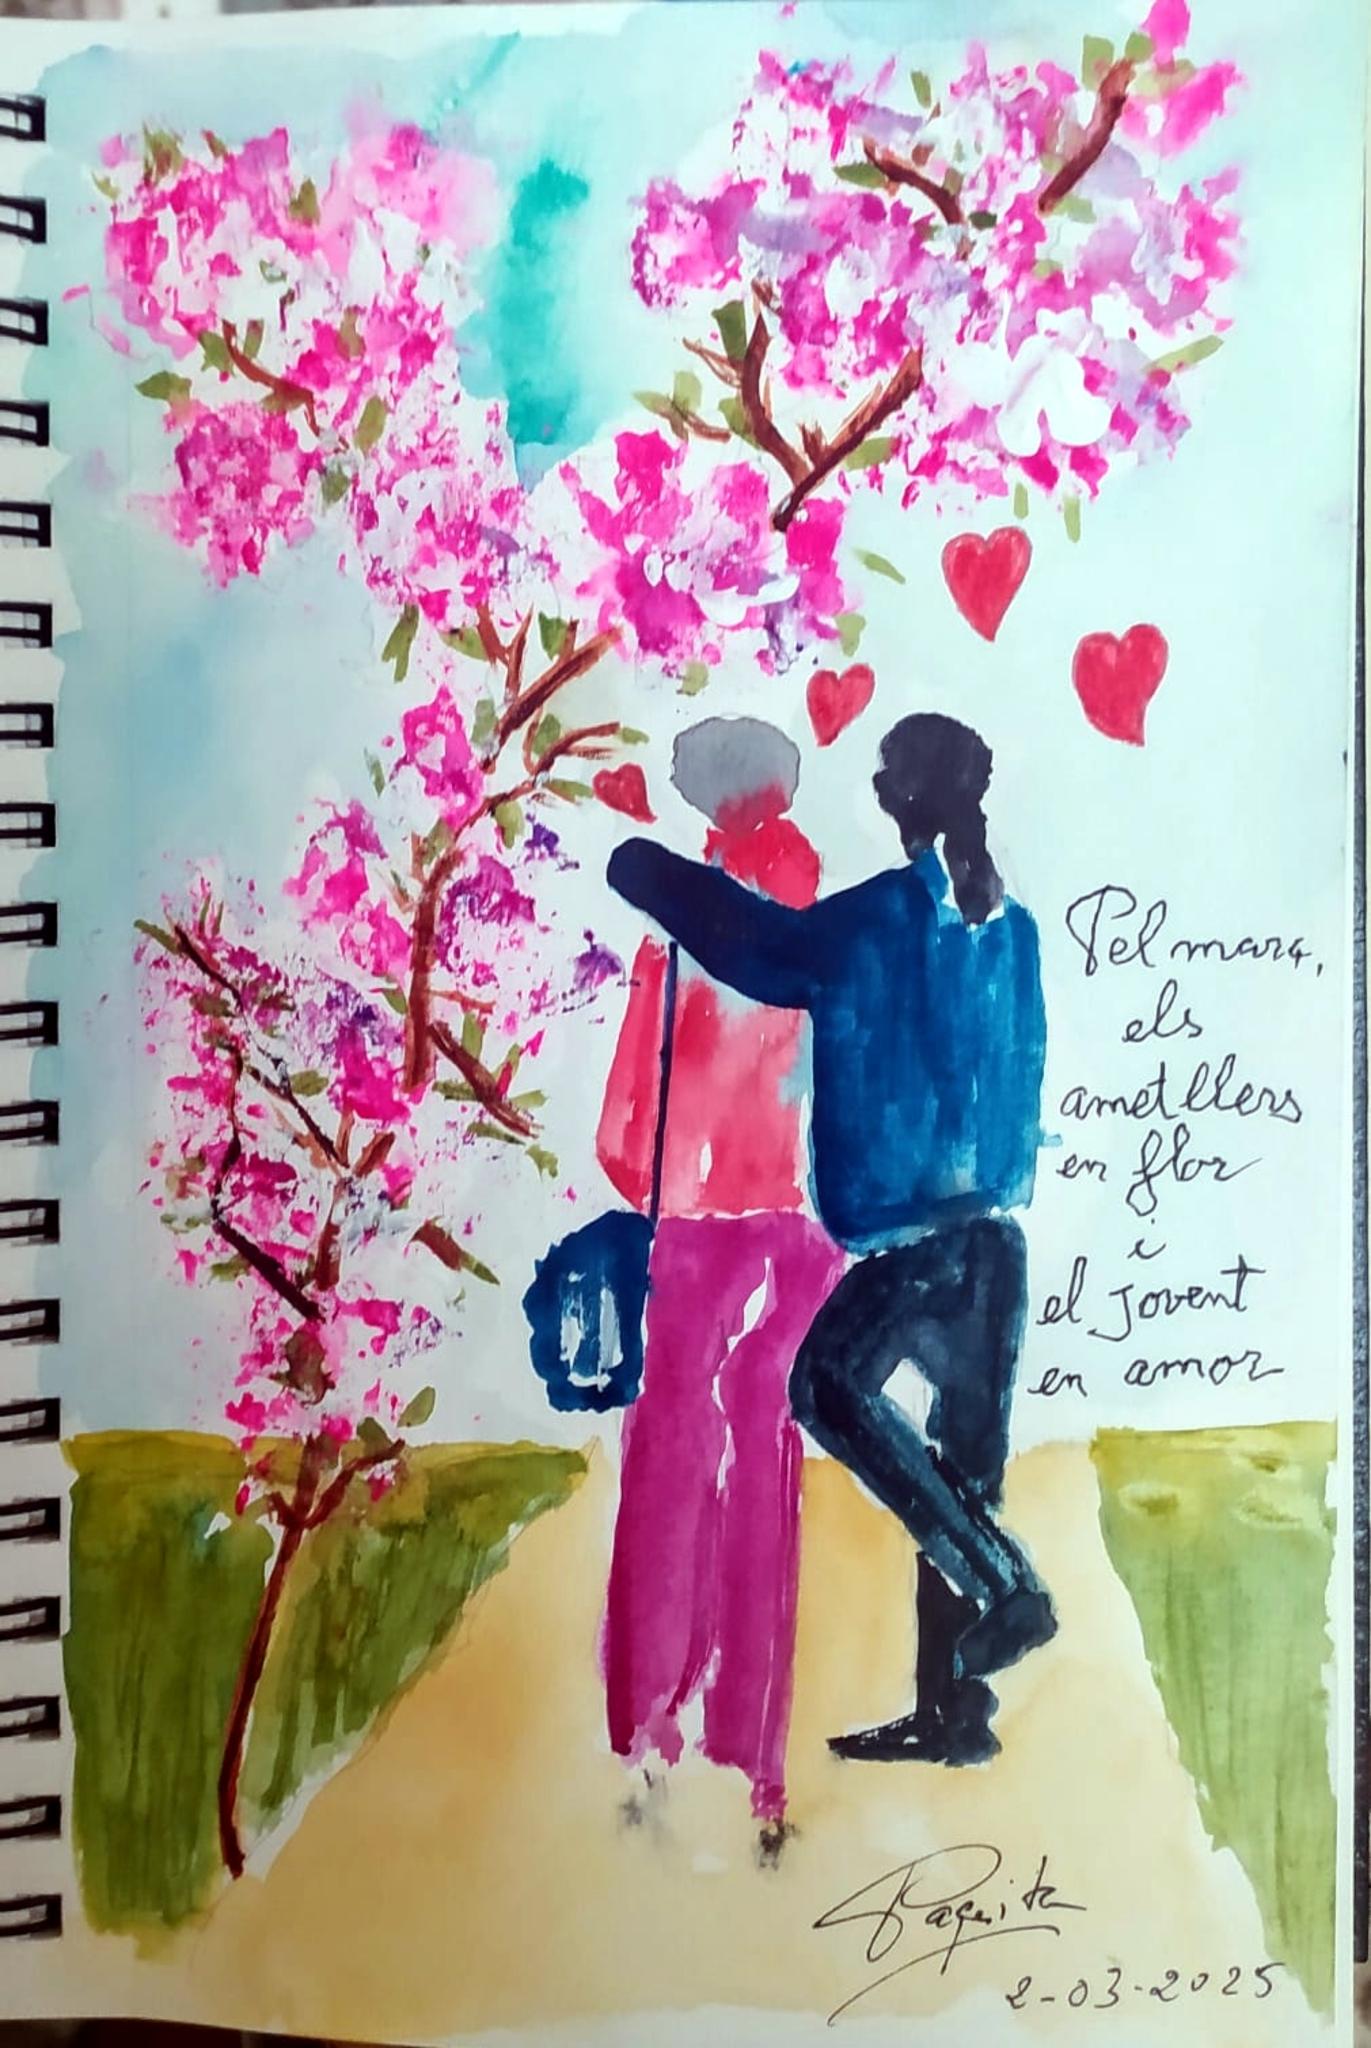 Pel març,
els
ametllers
en flor
i
el jovent
en amor
Paquita
2-03-2025